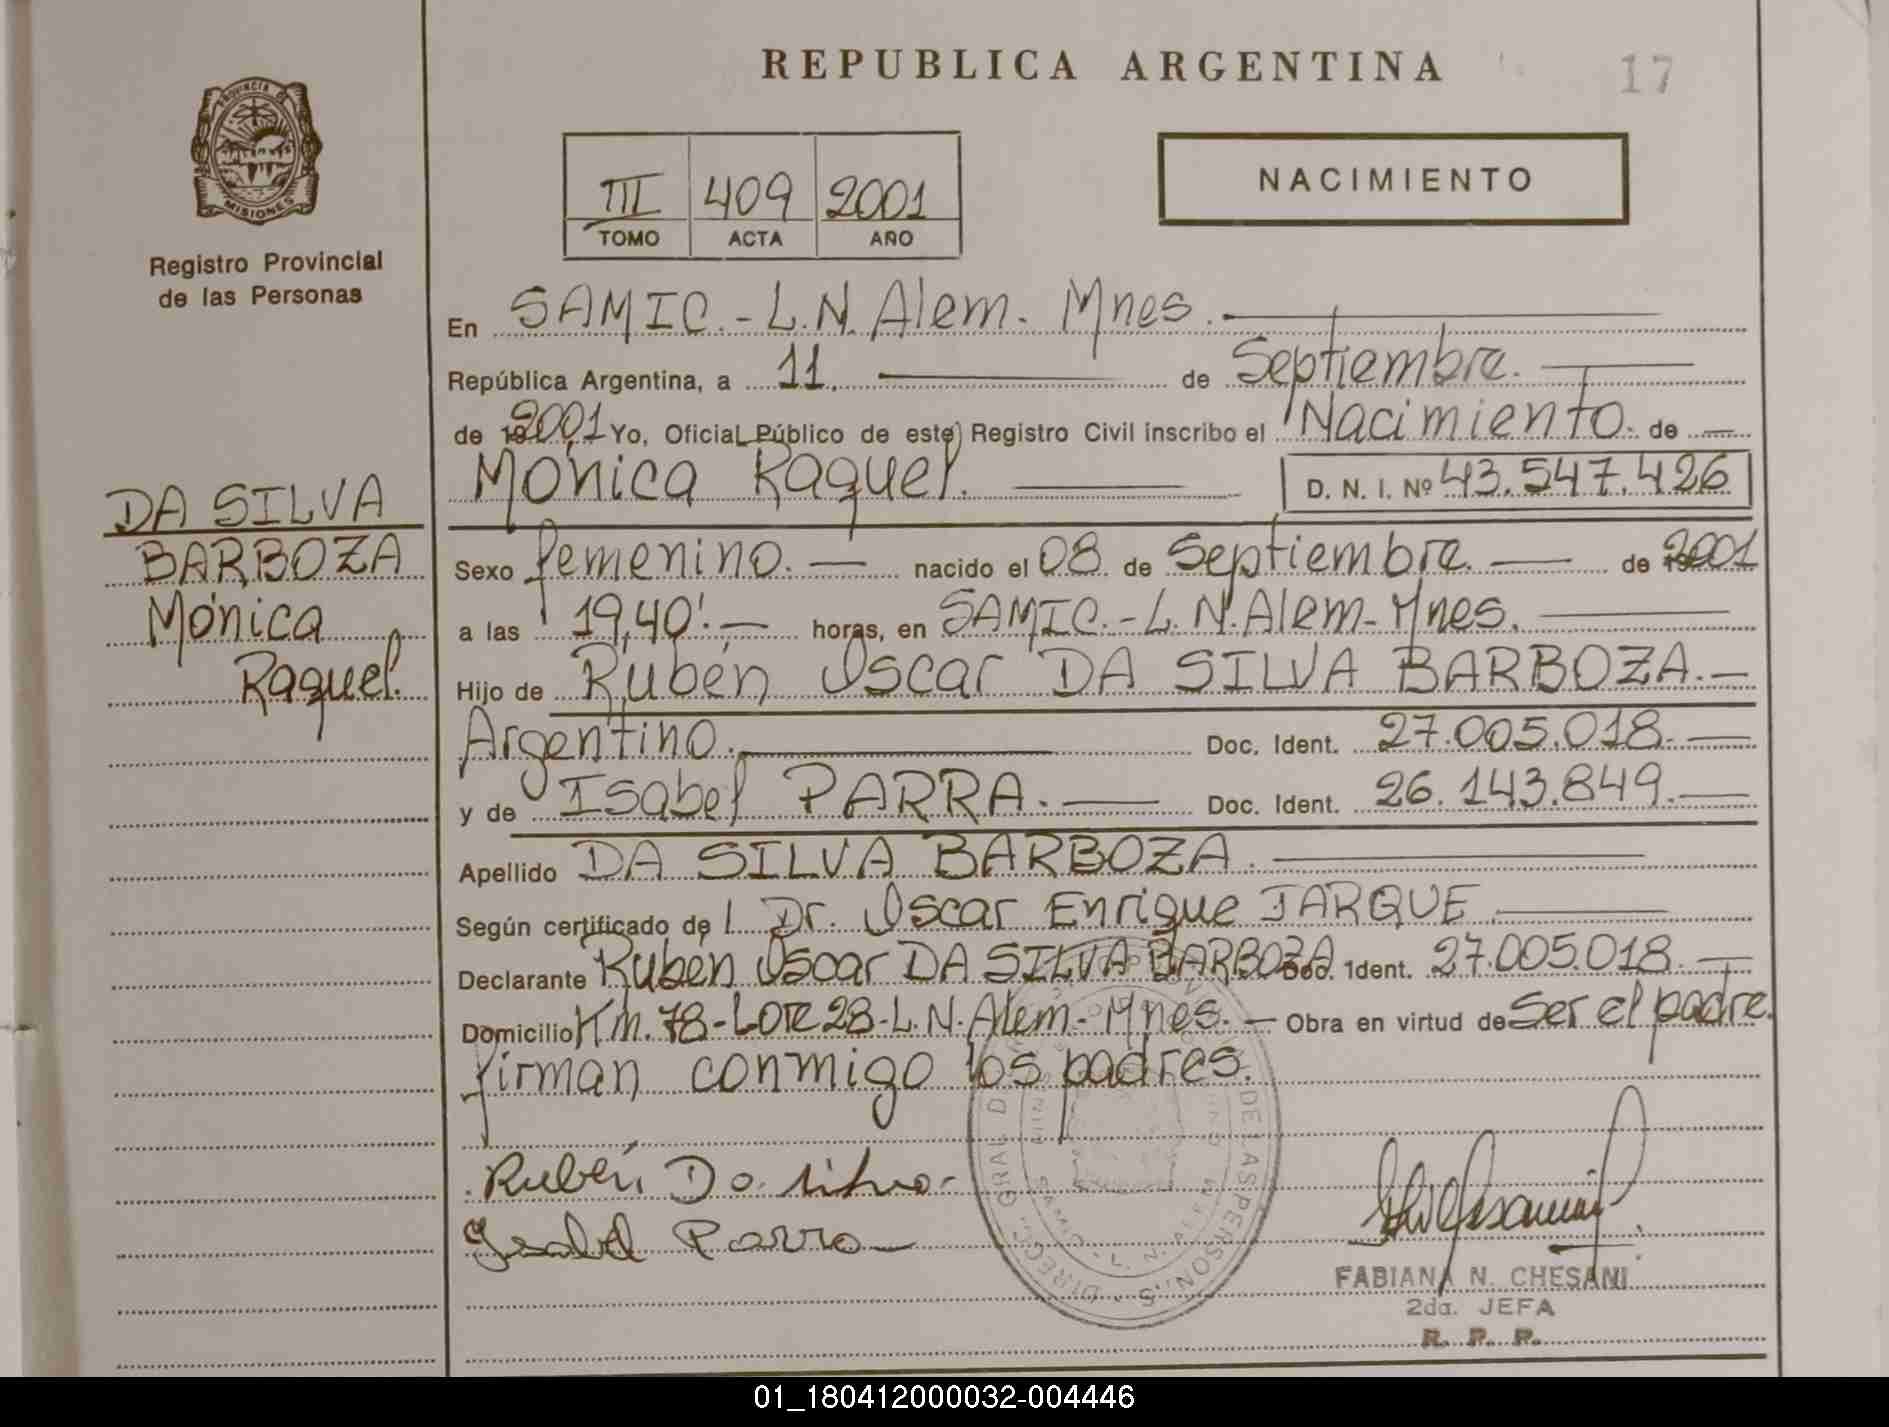 REPUBLICA ARGENTINA
17
PROVINCIA DE
MISIONES
Registro Provincial
de las Personas
III 409 2001
TOMO ACTA AÑO
NACIMIENTO
En SAMIC.-L.N.Alem. Mnes.
República Argentina, a 11. de Septiembre.
de 192001 Yo, Oficial Público de este Registro Civil inscribo el Nacimiento. de
Mónica Raquel. D. N. I. Nº 43.547.426
DA SILVA
BARBOZA
Mónica
Raquel.
Sexo femenino. nacido el 08 de Septiembre. de 2001
a las 19,40'. horas, en SAMIC.-L.N.Alem-Mnes.
Hijo de Rubén Oscar DA SILVA BARBOZA.
Argentino. Doc. Ident. 27.005.018.
y de Isabel PARRA. Doc. Ident. 26.143.849.
Apellido DA SILVA BARBOZA.
Según certificado de l Dr. Oscar Enrique JARQUE
Declarante Rubén Oscar DA SILVA BARBOZA Doc. Ident. 27.005.018.
Domicilio Km.78-LOTE 28-L.N.Alem-Mnes. Obra en virtud de Ser el padre.
firman conmigo los padres.
Rubén Da silva
Isabel Parra
DIRECC. GRAL DE LAS PERSONAS
SAMIC - L. N. ALEM
FABIANA N. CHESANI
2da. JEFA
R. P. P.
01_180412000032-004446